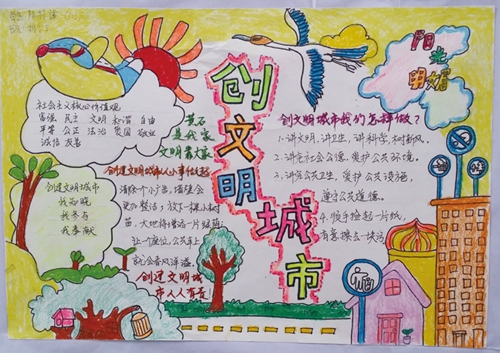 创文明城市
阳光明媚
社会主义核心价值观
富强 民主 文明 和谐 自由
平等 公正 法治 爱国 敬业
诚信 友善
是我家
文明靠大家
创建文明城市从小事做起
清除一个小广告,墙壁会
更加整洁;放下一棵小树
苗,大地将增添一片绿荫;
让一个座位,公共车上
就会春风洋溢。
创建文明城
市人人有责
创建文明城市
我知晓
我参与
我奉献
创文明城市我们怎样做?
1.讲文明,讲卫生,讲科学,树新风。
2.讲究社会公德,爱护公共环境。
3.讲究公共卫生,爱护公共设施,
遵守公共道德。
4.顺手捡起一片纸,
有意换去一块污